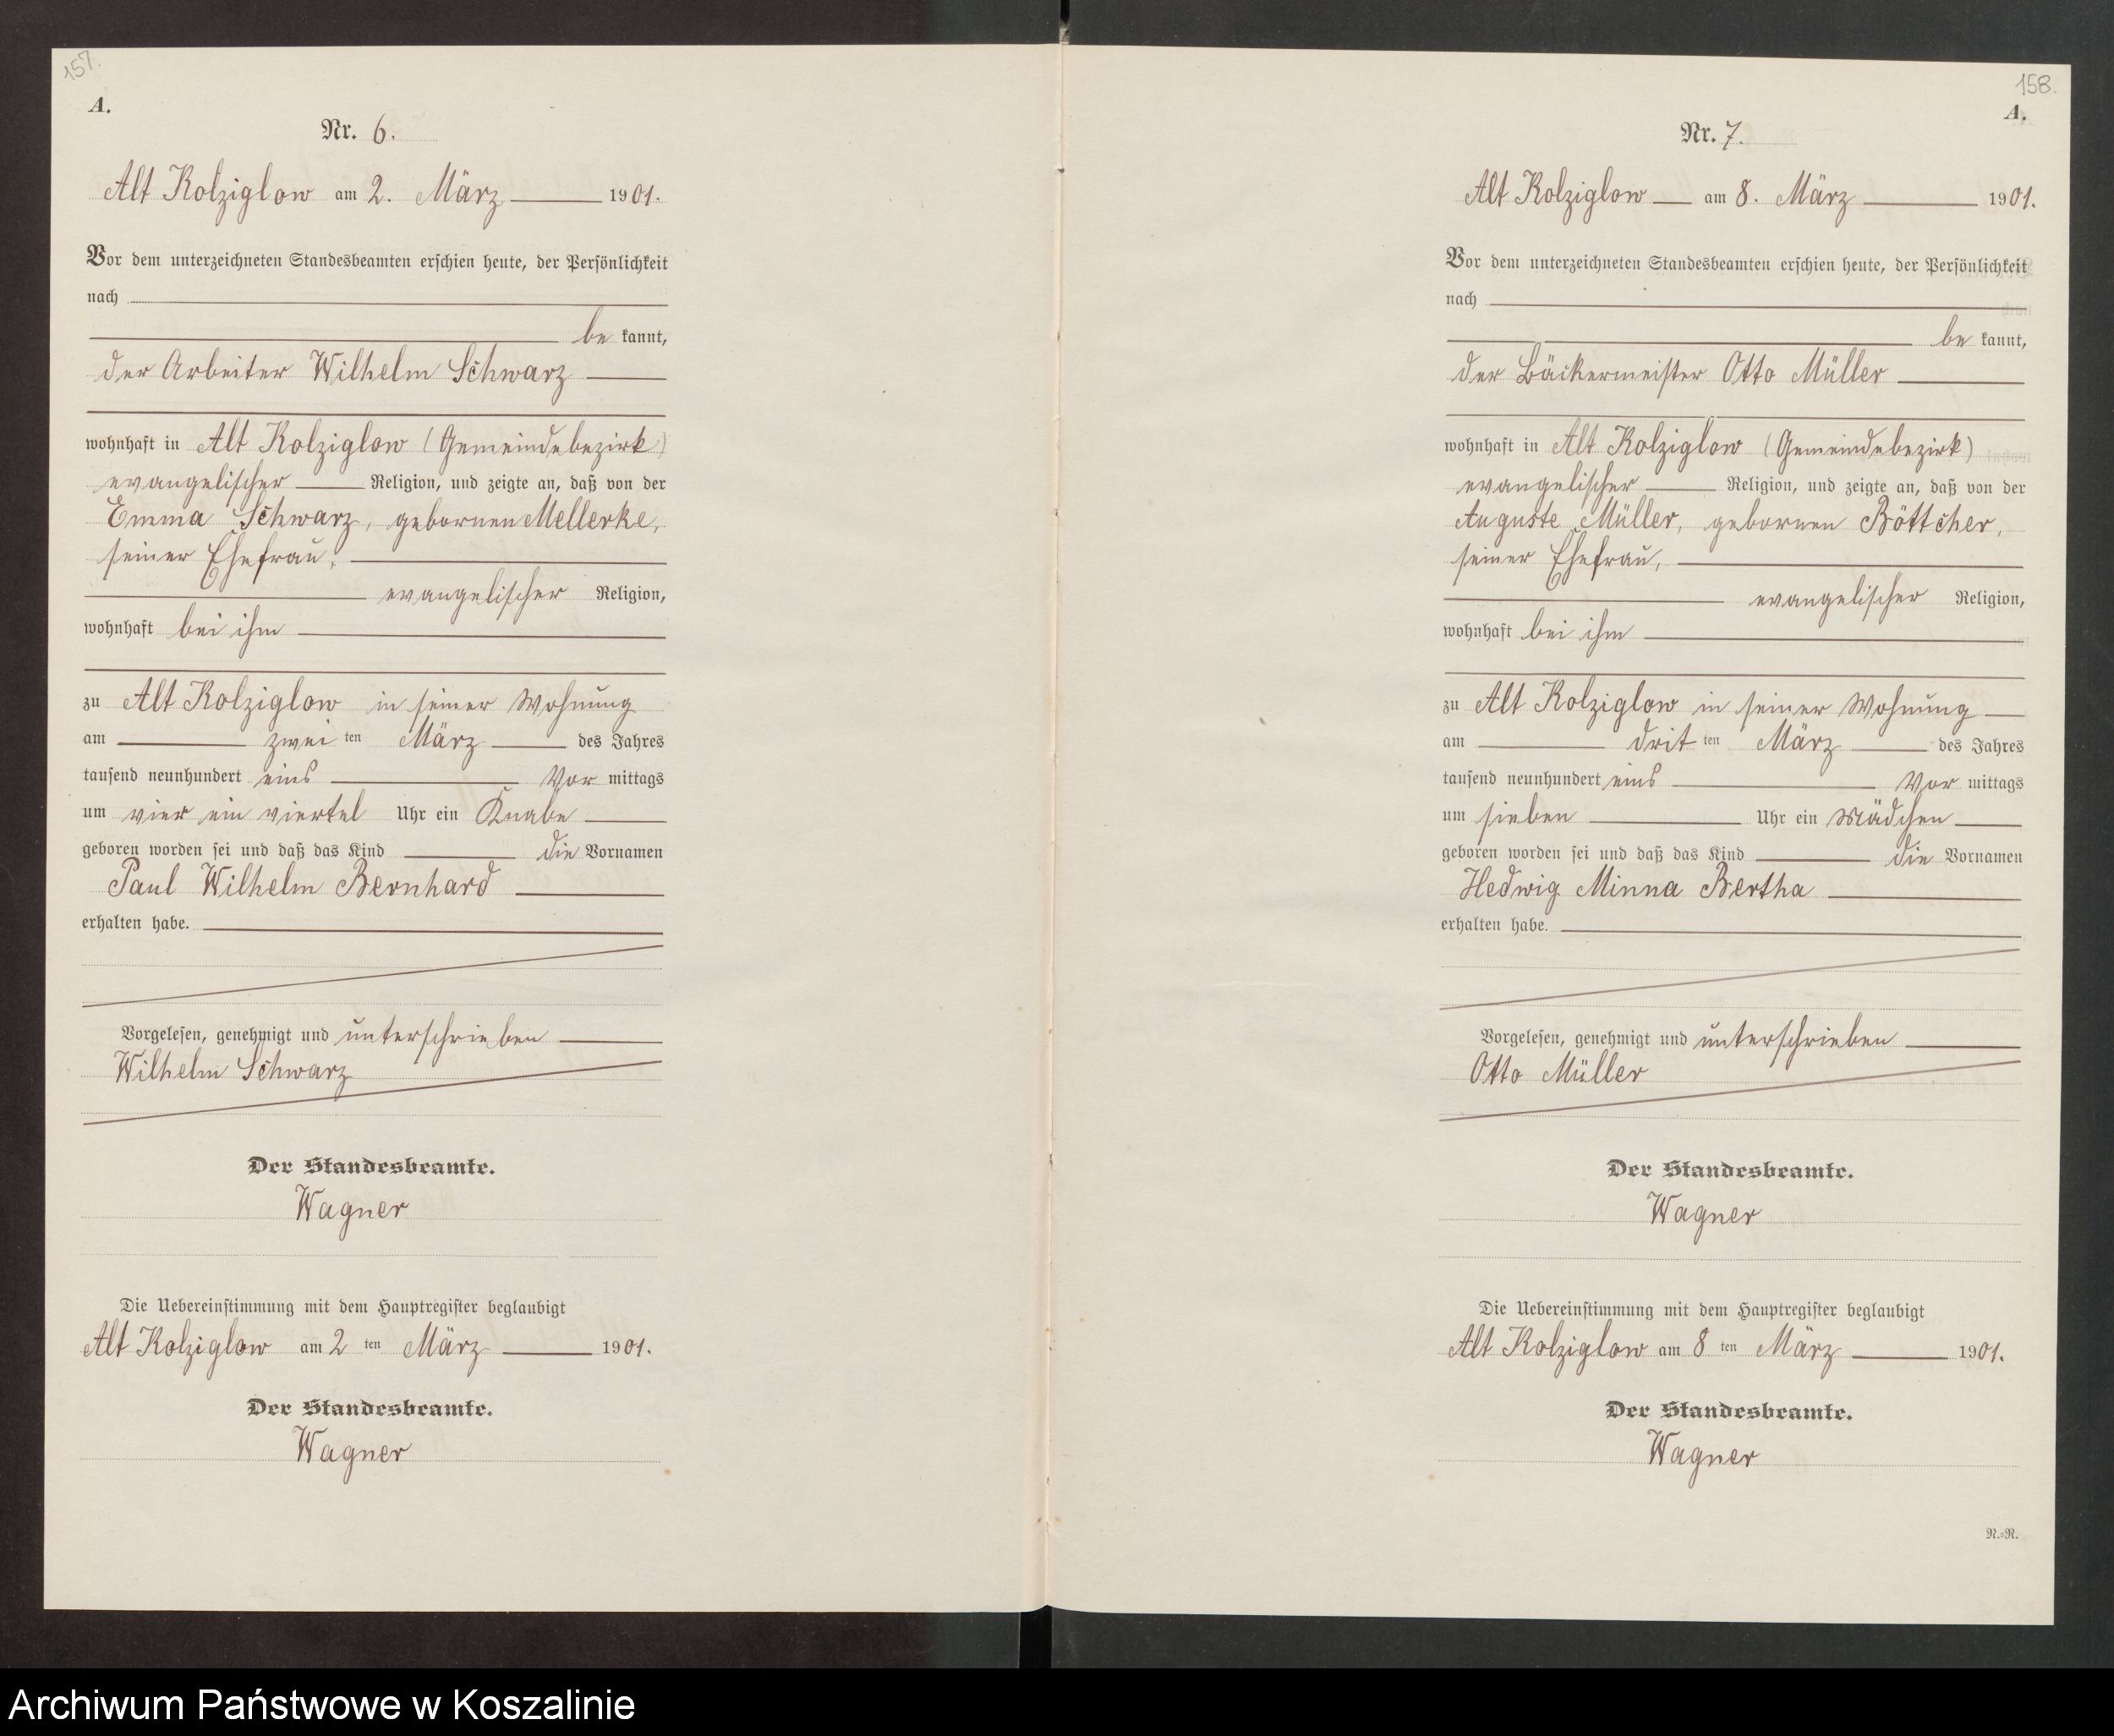 157.
A.
Nr. 6.
Alt Kolziglow am 2. März 1901.
Vor dem unterzeichneten Standesbeamten erschien heute, der Persönlichkeit
nach
be kannt,
der Arbeiter Wilhelm Schwarz
wohnhaft in Alt Kolziglow (Gemeindebezirk)
evangelischer Religion, und zeigte an, daß von der
Emma Schwarz, gebornen Mellerke,
seiner Ehefrau,
evangelischer Religion,
wohnhaft bei ihm
zu Alt Kolziglow in seiner Wohnung
am zwei ten März des Jahres
tausend neunhundert eins Vor mittags
um vier ein viertel Uhr ein Knabe
geboren worden sei und daß das Kind die Vornamen
Paul Wilhelm Bernhard
erhalten habe.
Vorgelesen, genehmigt und unterschrieben
Wilhelm Schwarz
Der Standesbeamte.
Wagner
Die Uebereinstimmung mit dem Hauptregister beglaubigt
Alt Kolziglow am 2 ten März 1901.
Der Standesbeamte.
Wagner
158.
A.
Nr. 7.
Alt Kolziglow am 8. März 1901.
Vor dem unterzeichneten Standesbeamten erschien heute, der Persönlichkeit
nach
be kannt,
der Bäckermeister Otto Müller
wohnhaft in Alt Kolziglow (Gemeindebezirk)
evangelischer Religion, und zeigte an, daß von der
Auguste Müller, gebornen Böttcher,
seiner Ehefrau,
evangelischer Religion,
wohnhaft bei ihm
zu Alt Kolziglow in seiner Wohnung
am drit ten März des Jahres
tausend neunhundert eins Vor mittags
um sieben Uhr ein Mädchen
geboren worden sei und daß das Kind die Vornamen
Hedwig Minna Bertha
erhalten habe.
Vorgelesen, genehmigt und unterschrieben
Otto Müller
Der Standesbeamte.
Wagner
Die Uebereinstimmung mit dem Hauptregister beglaubigt
Alt Kolziglow am 8 ten März 1901.
Der Standesbeamte.
Wagner
N.=R.
Archiwum Państwowe w Koszalinie